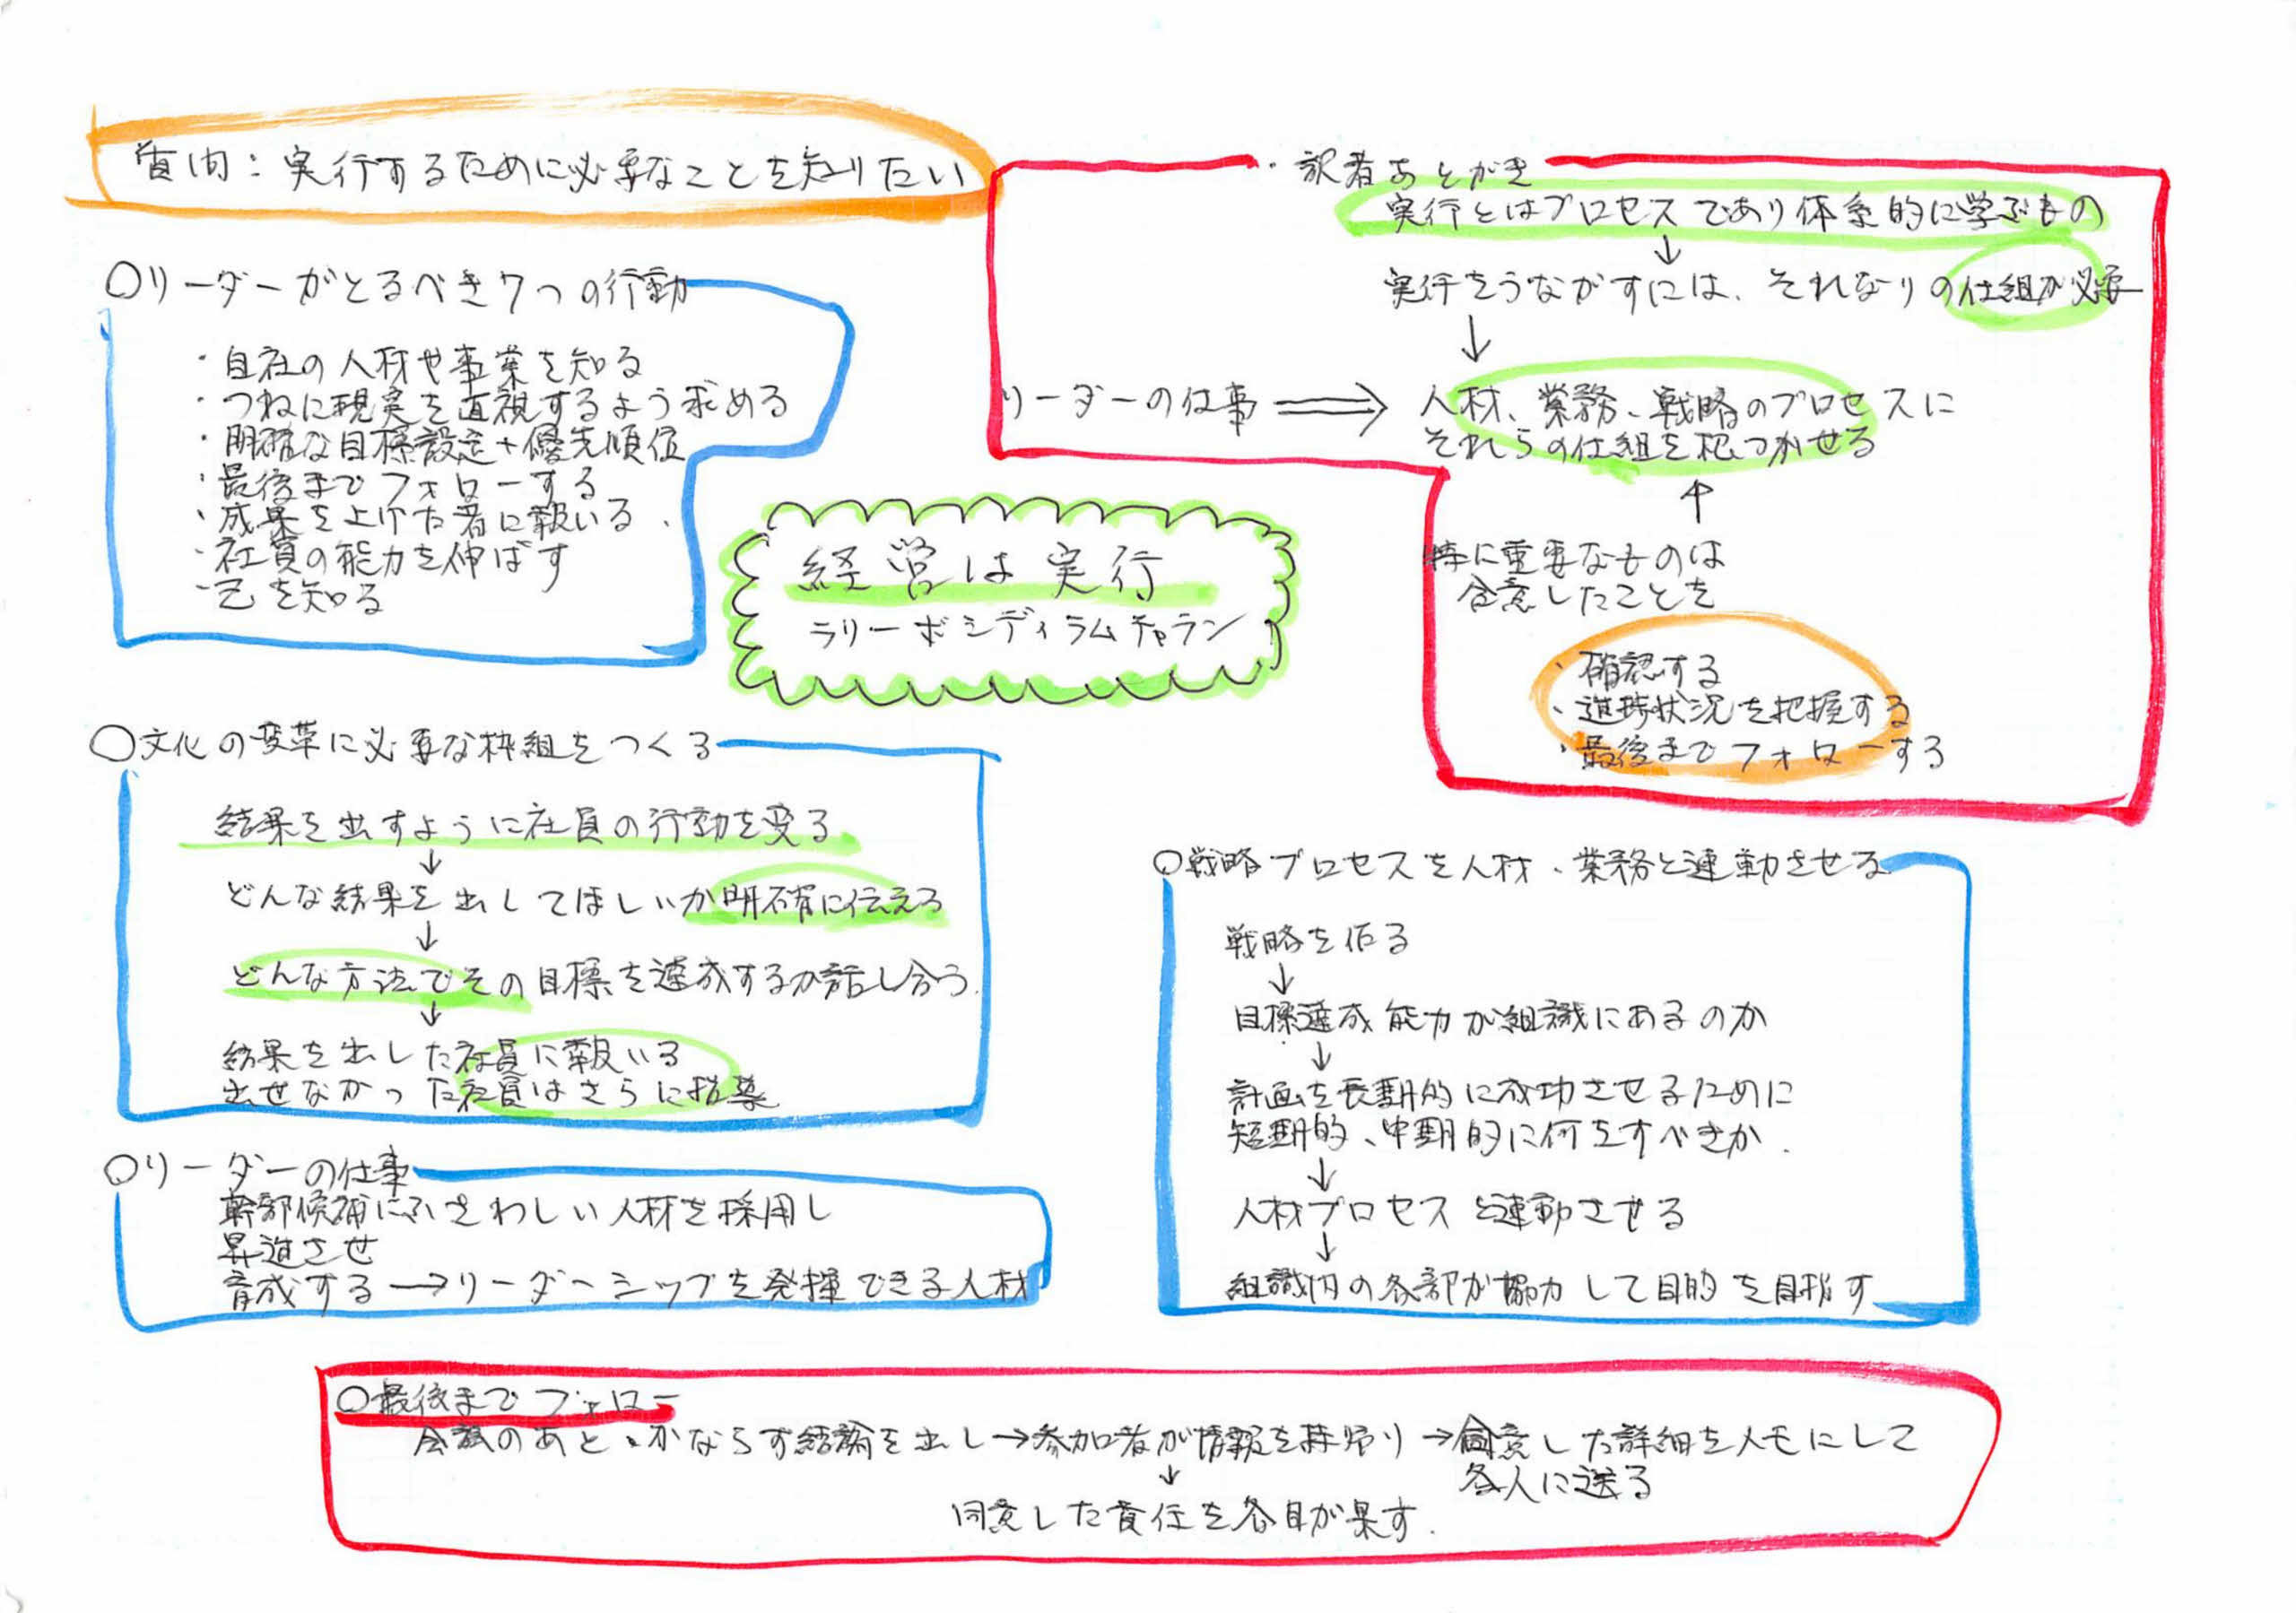 質問：実行するために必要なことを知りたい
○リーダーがとるべき7つの行動
・自社の人材や事業を知る
・つねに現実を直視するよう求める
・明確な目標設定+優先順位
・最後までフォローする
・成果を上げた者に報いる
・社員の能力を伸ばす
・己を知る
・訳者あとがき
実行とはプロセスであり体系的に学ぶもの
↓
実行をうながすには、それなりの仕組が必要
↓
リーダーの仕事 ⇒ 人材、業務、戦略のプロセスに
それらの仕組を根づかせる
↑
特に重要なものは
合意したことを
・確認する
・進捗状況を把握する
・最後までフォローする
経営は実行
ラリーボシディ ラムチャラン
○文化の変革に必要な枠組をつくる
結果を出すように社員の行動を変る
↓
どんな結果を出してほしいか明確に伝える
↓
どんな方法でその目標を達成するか話し合う.
↓
結果を出した社員に報いる
出せなかった社員はさらに指導
○リーダーの仕事
幹部候補にふさわしい人材を採用し
昇進させ
育成する→リーダーシップを発揮できる人材
○戦略プロセスを人材、業務と連動させる
戦略を作る
↓
目標達成能力が組織にあるのか
↓
計画を長期的に成功させるために
短期的、中期的に何をすべきか.
↓
人材プロセスと連動させる
↓
組織内の各部が協力して目的を目指す
○最後までフォロー
会議のあと、かならず結論を出し→参加者が情報を持帰り→合意した詳細をメモにして
各人に送る
↓
同意した責任を各自が果す.